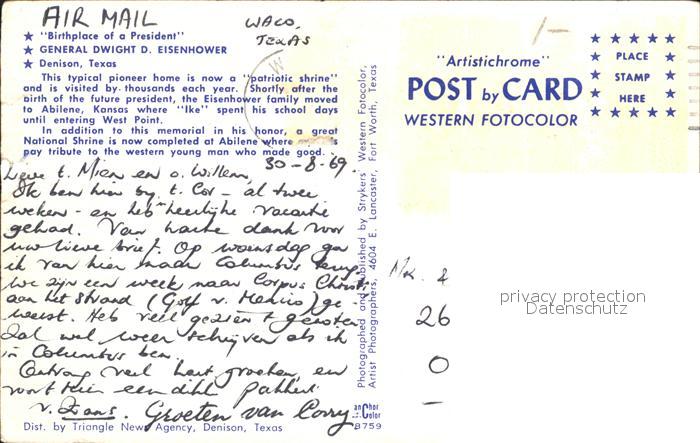 AIR MAIL
WACO,
TEXAS
★ "Birthplace of a President"
★ GENERAL DWIGHT D. EISENHOWER
★ Denison, Texas
This typical pioneer home is now a "patriotic shrine"
and is visited by thousands each year. Shortly after the
birth of the future president, the Eisenhower family moved
to Abilene, Kansas where "Ike" spent his school days
until entering West Point.
In addition to this memorial in his honor, a great
National Shrine is now completed at Abilene where
pay tribute to the western young man who made good.
30-8-69.
Lieve t. Mien en o. Willem,
Ik ben hier bij t. Cor - al twee
weken - en heb heerlijke vacantie
gehad. Van harte dank voor
uw lieve brief. Op woensdag ga
ik van hier naar Columbus terug
we zijn een week naar Corpus Christi
aan het strand (Golf v. Mexico) ge-
weest. Heb veel gezien & genoten
Zal wel weer schrijven als ik
in Columbus ben.
Ontvang veel hart. groeten, en
voor een dikke pakkerd
v. Groeten van Corry
Dist. by Triangle News Agency, Denison, Texas
Photographed and published by Strykers' Western Fotocolor,
Art Photographers, 4604 E. Lancaster, Fort Worth, Texas
8759
"Artistichrome"
POST by CARD
WESTERN FOTOCOLOR
PLACE
STAMP
HERE
26
0
privacy protection
Datenschutz